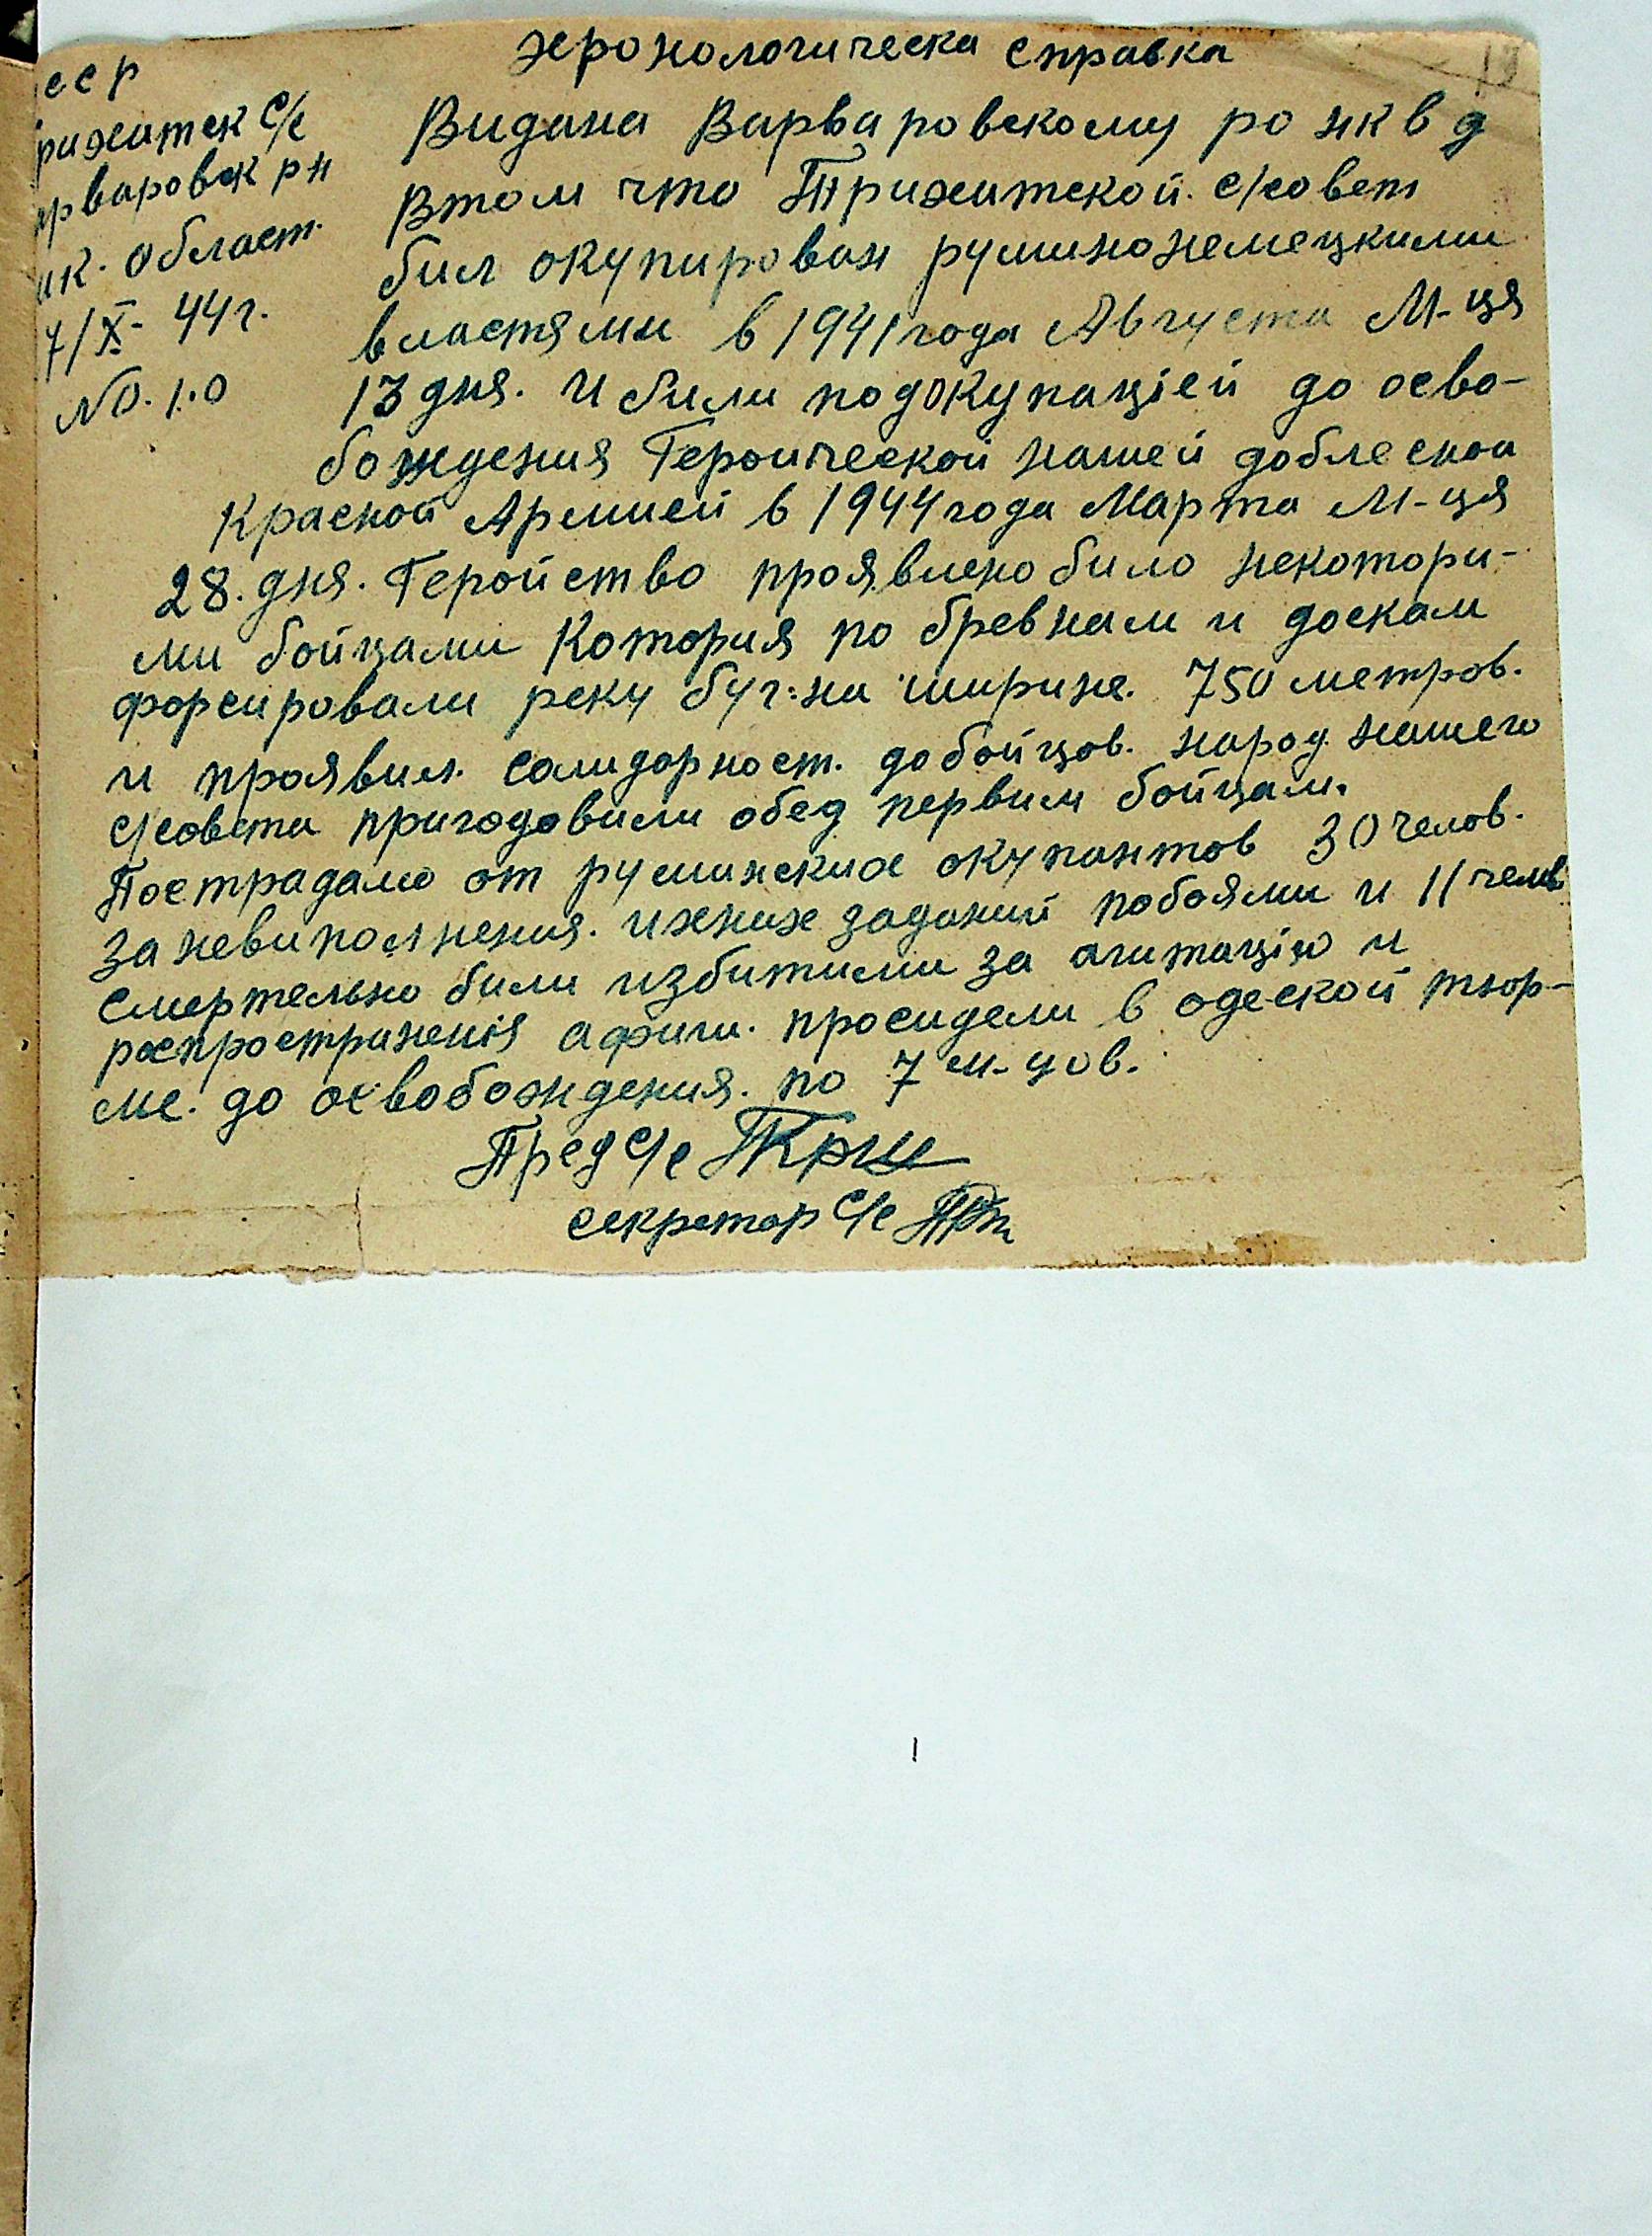 хронологическа справка
сср
рихатск С/с
рваровск р н
ик. област.
7/X- 44 г.
No. 1.0
Видана Варваровскому ро нквд
Втом что Трихатской. с/совет
бил окупирован руминонемецкими
властями в 1941 года Августа М-ця
13 дня. и били подокупацiей до осво-
бождения Героической нашей доблесной
Красной Армией в 1944 года Марта М-ця
28. дня. Геройство проявлено било некотори-
ми бойцами Котория по бревнам и доскам
форсировали реку буг: на ширине. 750 метров.
и проявил. солидарност. до бойцов. народ. нашего
с/совета пригодовили обед первим бойцам.
Пострадало от руминских окупантов 30 челов.
за невиполнения. ихних заданий побоями и 11 челов
смертельно били избитими за агитацiю и
роспространенiя афиш. просидели в одеской тюр-
ме. до освобождения. по 7 м-цов.
Пред с/с
секретар С/с